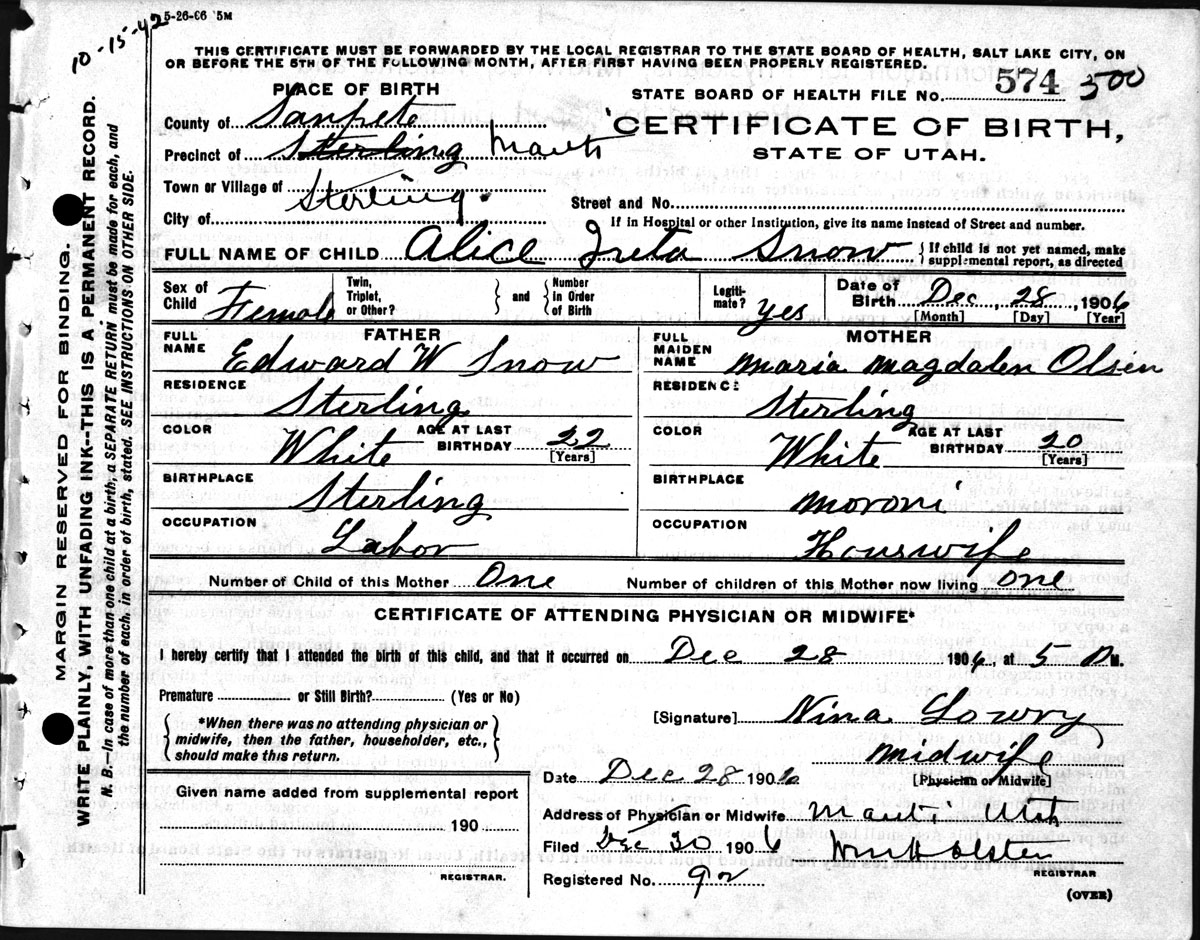 10-15-42
5-26-06 5M
THIS CERTIFICATE MUST BE FORWARDED BY THE LOCAL REGISTRAR TO THE STATE BOARD OF HEALTH, SALT LAKE CITY, ON
OR BEFORE THE 5TH OF THE FOLLOWING MONTH, AFTER FIRST HAVING BEEN PROPERLY REGISTERED.
PLACE OF BIRTH
STATE BOARD OF HEALTH FILE No. 574 500
County of Sanpete
CERTIFICATE OF BIRTH,
Precinct of Sterling Manti
STATE OF UTAH.
Town or Village of Sterling.
Street and No.
City of
If in Hospital or other Institution, give its name instead of Street and number.
FULL NAME OF CHILD Alice Ireta Snow { If child is not yet named, make
supplemental report, as directed
Sex of Child Female
Twin, Triplet, or Other? } and { Number in Order of Birth
Legitimate? Yes
Date of Birth Dec 28, 1906
[Month] [Day] [Year]
FATHER
FULL NAME Edward W Snow
RESIDENCE Sterling
COLOR White AGE AT LAST BIRTHDAY 22 [Years]
BIRTHPLACE Sterling
OCCUPATION Labor
MOTHER
FULL MAIDEN NAME Maria Magdalen Olsen
RESIDENCE Sterling
COLOR White AGE AT LAST BIRTHDAY 20 [Years]
BIRTHPLACE Moroni
OCCUPATION Houswife
Number of Child of this Mother One Number of children of this Mother now living One
CERTIFICATE OF ATTENDING PHYSICIAN OR MIDWIFE*
I hereby certify that I attended the birth of this child, and that it occurred on Dec 28 1906, at 5 P M.
Premature or Still Birth? (Yes or No)
{ *When there was no attending physician or
midwife, then the father, householder, etc.,
should make this return. }
[Signature] Nina Lowry
Midwife
[Physician or Midwife]
Date Dec 28 1906
Given name added from supplemental report
190
REGISTRAR.
Address of Physician or Midwife Manti Utah
Filed Dec 30 1906
REGISTRAR
Registered No. 92
(OVER)
MARGIN RESERVED FOR BINDING.
WRITE PLAINLY, WITH UNFADING INK--THIS IS A PERMANENT RECORD.
N. B.—In case of more than one child at a birth, a SEPARATE RETURN must be made for each, and
the number of each, in order of birth, stated. SEE INSTRUCTIONS ON OTHER SIDE.